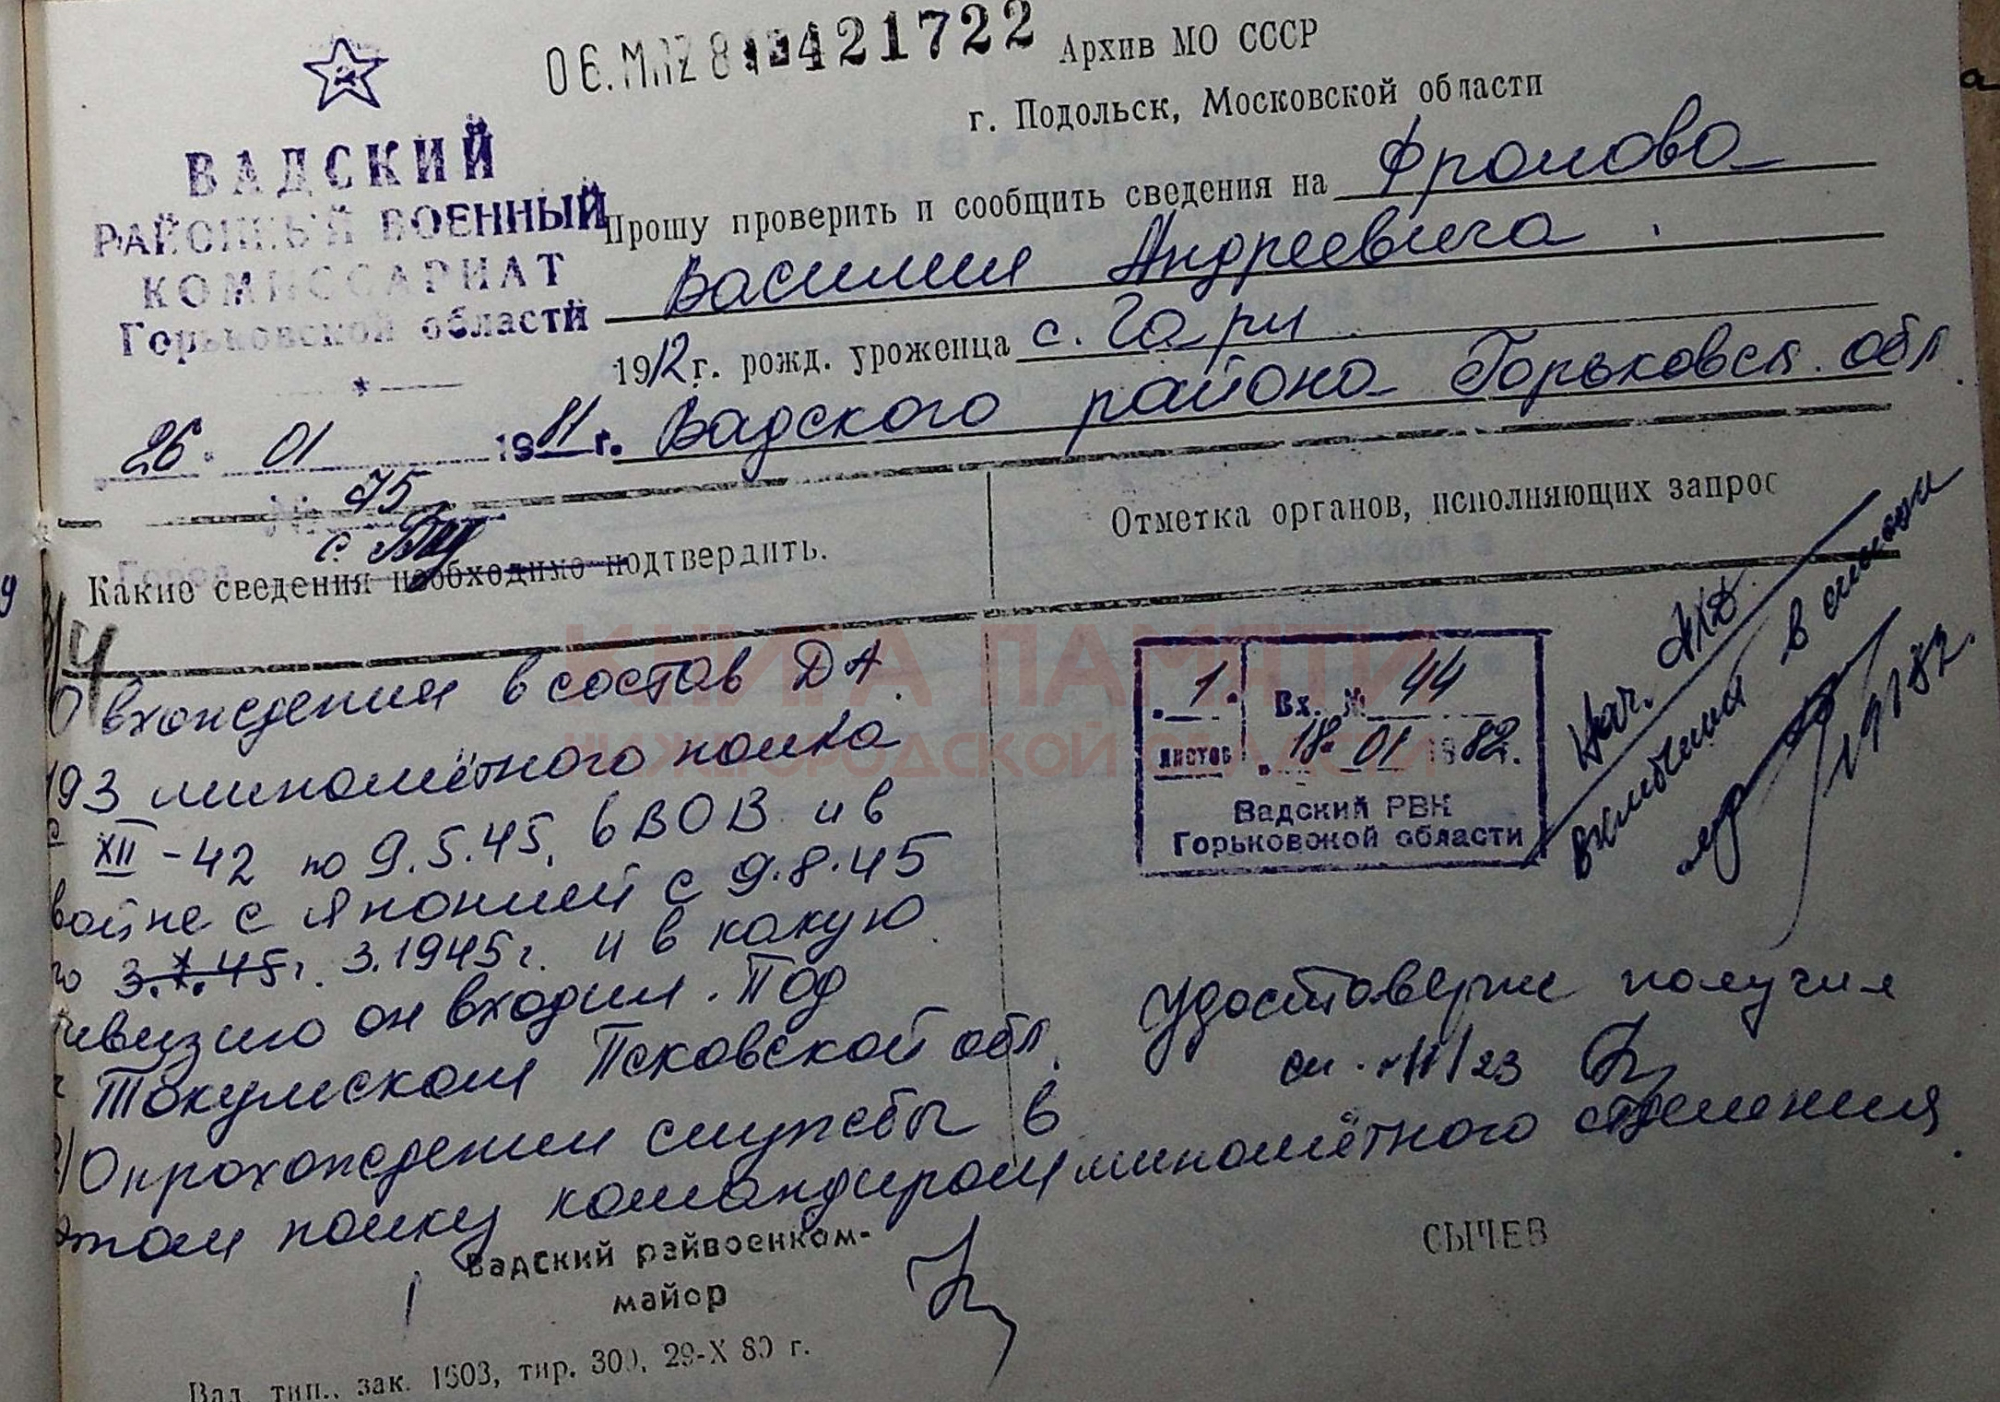 421722
Архив МО СССР
г. Подольск, Московской области
ВАДСКИЙ
РАЙОННЫЙ ВОЕННЫЙ
КОМИССАРИАТ
Горьковской области
Прошу проверить и сообщить сведения на Фролова
Василия Андреевича.
1912 г. рожд. уроженца с. Гари
Вадского района Горьковск. обл.
26. 01 1981 г.
№ 75
Какие сведения необходимо подтвердить.
Отметка органов, исполняющих запрос
КНИГА ПАМЯТИ
НИЖЕГОРОДСКОЙ ОБЛАСТИ
О вхождении в состав ДА.
193 миномётного полка
с XII-42 по 9.5.45. в ВОВ и в
войне с Японией с 9.8.45
по 3.X.45г. 3.1945г. и в какую
дивизию он входил. Под
г. Псковской обл.
2) О прохождении службы в
этом полку командиром миномётного отделения.
1. листов
Вх. № 44
18. 01 1982г.
Вадский РВК
Горьковской области
Нач.
включить в списки
Удостоверение получил
СЫЧЕВ
Вадский райвоенком-
майор
Вад. тип., зак. 1603, тир. 300, 29-X 80 г.